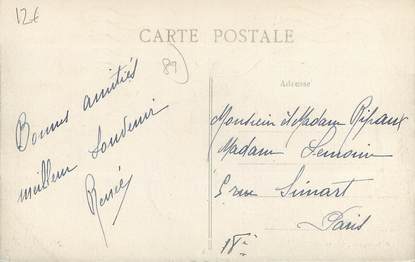 12€
CARTE POSTALE
89
Adresse
Bonnes amitiés
meilleur Souvenir
Renée
Monsieur et Madam Ripaux
Madam Lemoine
5 rue Simart
Paris
18è